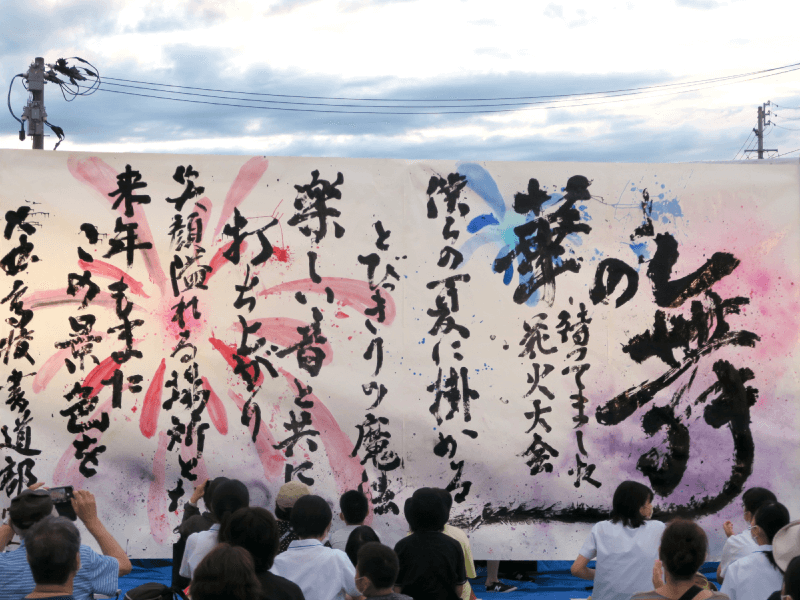 の華
待ってました
花火大会
僕らの夏に掛ける
とびきりの魔法
楽しい音と共に
打ち上がり
笑顔溢れる場所と
来年もまた
この景色を
高校書道部